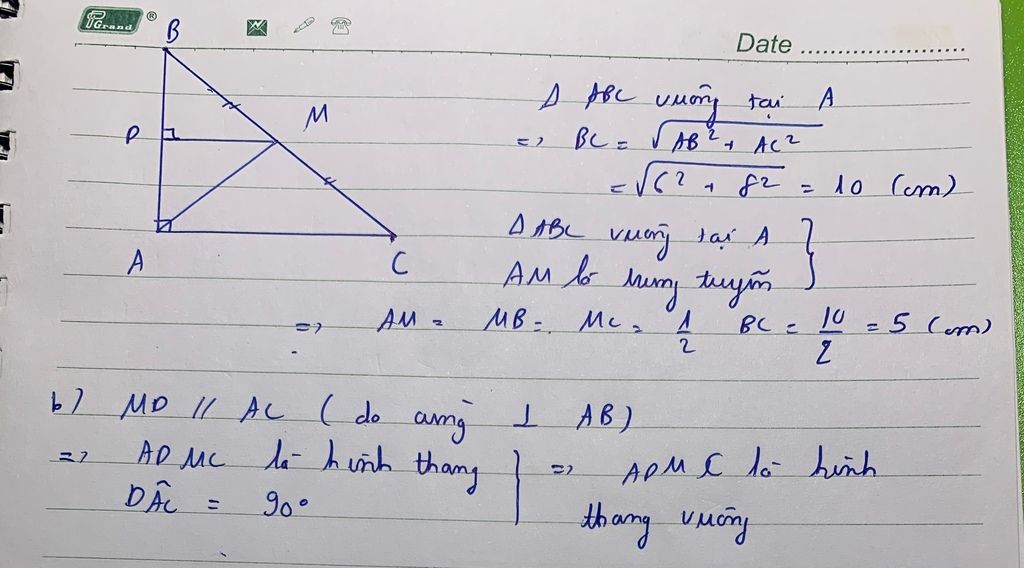 PGrand ®
Date ........................
B
M
D
A
C
Δ ABC vuông tại A
=> BC = √(AB² + AC²)
= √(6² + 8²) = 10 (cm)
Δ ABC vuông tại A
AM là trung tuyến
=> AM = MB = MC = 1/2 BC = 10/2 = 5 (cm)
b) MD // AC (do cùng ⊥ AB)
=> ADMC là hình thang
DÂC = 90°
=> ADMC là hình
thang vuông